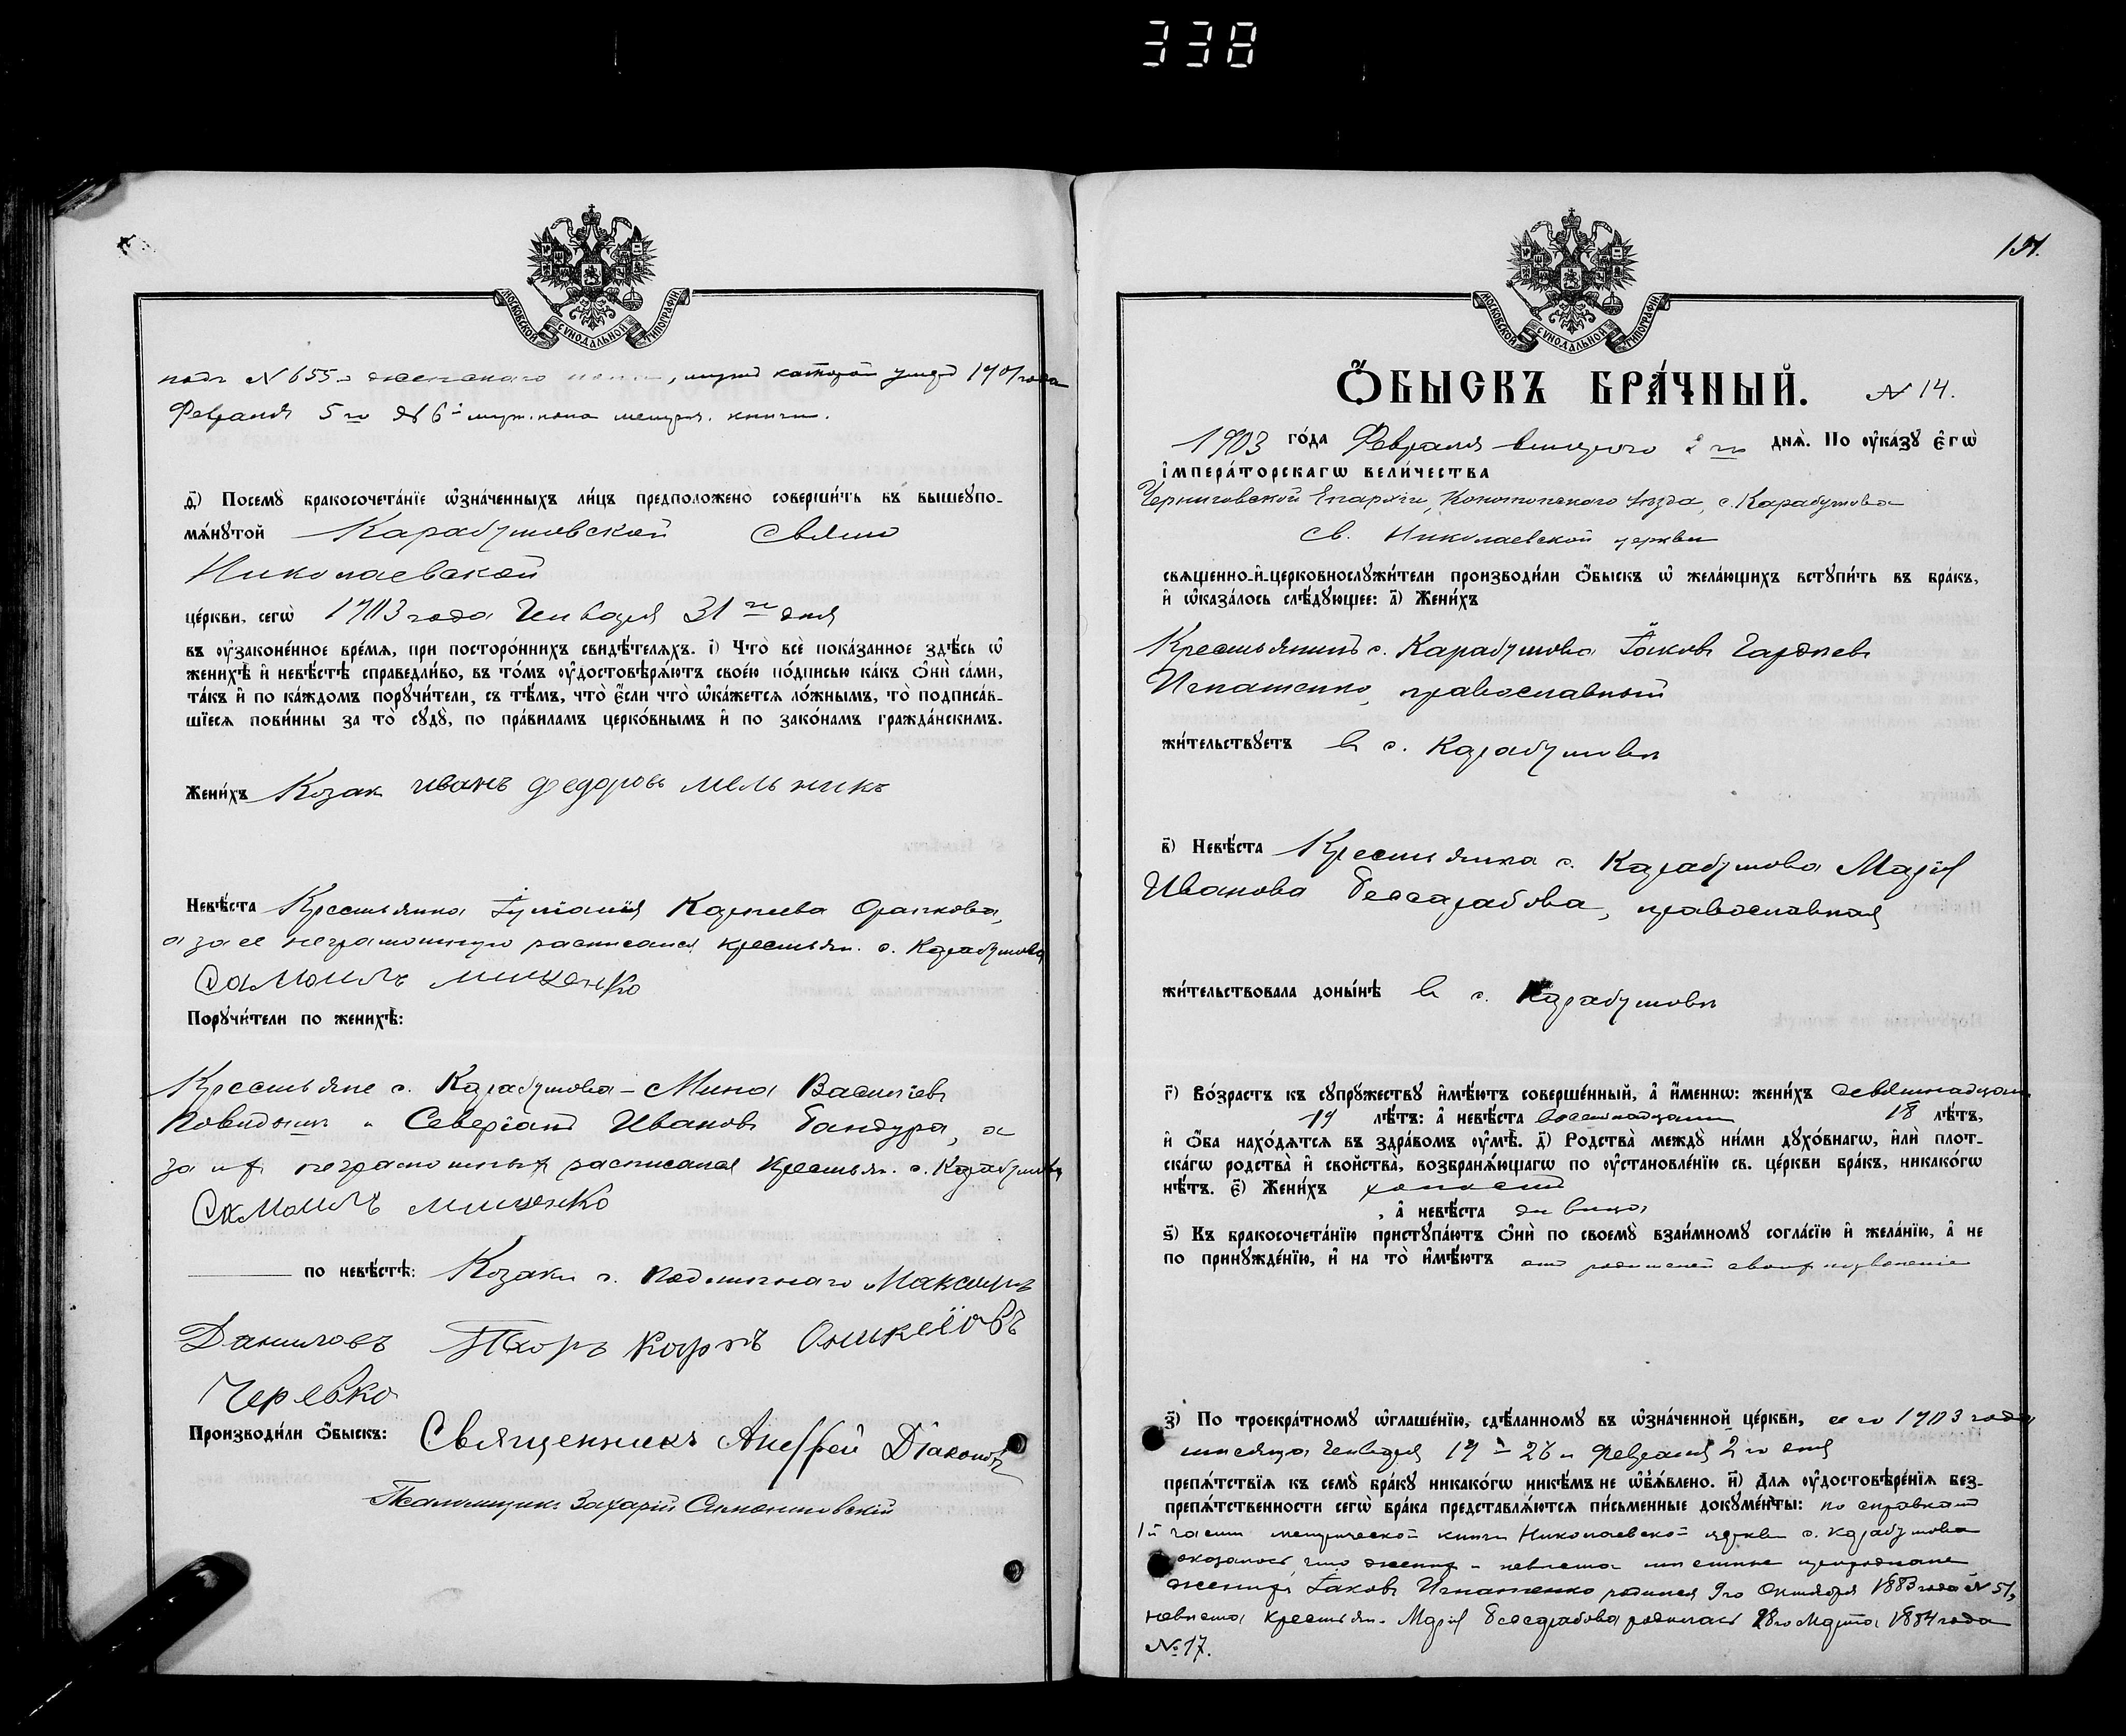 338
МОСКОВСКОЙ СѴНОДАЛЬНОЙ ТИПОГРАФІИ
подъ № 655 женскаго, мужъ которой умеръ 1901 года
Февраля 5го № 6й муж. пола метрич. книги.
д҃) Посемꙋ̀ бракосочета́нїе ѡ҆зна́ченныхъ ли́цъ предположено̀ соверши́ть въ вышеꙋпо-
мѧ́нꙋтой Карабутовской Свято
Николаевской
це́ркви, сегѡ̀ 1903 года Генваря 31го дня
въ ᲂу҆зако́ненное вре́мѧ, при посторо́ннихъ свидѣ́телѧхъ. і҃) Что̀ всѐ пока́занное здѣ́сь ѡ҆
женихѣ̀ и҆ невѣ́стѣ справедли́во, въ то́мъ ᲂу҆достовѣрѧ́ютъ свое́ю по́дписью ка́къ ѻ҆нѝ са́ми,
та́къ и҆ по ка́ждомъ порꙋчи́тели, съ тѣ́мъ, что̀ є҆́сли что̀ ѡ҆ка́жетсѧ ло́жнымъ, то̀ подписа́в-
шїесѧ пови́нны за то̀ сꙋдꙋ̀, по пра́виламъ церко́внымъ и҆ по зако́намъ гражда́нскимъ.
Жени́хъ Козак иванъ федоровъ мельникъ
Невѣ́ста Крестьянка Іуліанія Карпова
а за ее неграмотную расписался крестьян. с. Карабутова
Самоилъ мищенко
Порꙋчи́тели по женихѣ̀:
Крестьяне с. Карабутова – Мина Васильевъ
и Северіанъ Ивановъ Бандура, а
за ихъ неграмотныхъ расписался Крестьян. с. Карабутова
Самоилъ мищенко
по невѣ́стѣ: Козаки с. Подлипнаго Максимъ
Даниловъ Тхоръ Карпъ Оникеіовъ
Черевко
Производи́ли ѻ҆́быскъ: Священникъ Андрей Діаконовъ
Псаломщикъ Захарій
191.
МОСКОВСКОЙ СѴНОДАЛЬНОЙ ТИПОГРАФІИ
Ѻ҆́БЫСКЪ БРА́ЧНЫЙ. № 14.
1903 го́да Февраля второго 2го днѧ̀. По ᲂу҆ка́зꙋ є҆гѡ̀
і҆мпера́торскагѡ вели́чества
Черниговской Епархіи, Конотопскаго уѣзда, с. Карабутова
Св. Николаевской церкви
свѧщенно-и҆-церковнослꙋжи́тели производи́ли ѻ҆́быскъ ѡ҆ жела́ющихъ встꙋпи́ть въ бра́къ,
и҆ ѡ҆каза́лось слѣ́дꙋющее: а҃) Жени́хъ
Крестьянинъ с. Карабутова Іаковъ Гордѣевъ
Игнатенко, православный
жи́тельствꙋетъ въ с. Карабутовѣ
в҃) Невѣ́ста Крестьянка с. Карабутова Марія
Иванова Бессарабова, православная
жи́тельствовала доны́нѣ въ с. Карабутовѣ
г҃) Во́зрастъ къ сꙋпрꙋ́жествꙋ и҆мѣ́ютъ соверше́нный, а҆ и҆́меннѡ: жени́хъ девятнадцать
19 лѣ́тъ: а҆ невѣ́ста восемнадцать 18 лѣ́тъ,
и҆ ѻ҆́ба нахо́дѧтсѧ въ здра́вомъ ᲂу҆мѣ̀. д҃) Родства̀ междꙋ̀ ни́ми дꙋхо́внагѡ, и҆лѝ плот-
ска́гѡ родства̀ и҆ сво́йства, возбранѧ́ющагѡ по ᲂу҆становле́нїю св. це́ркви бра́къ, никако́гѡ
нѣ́тъ. є҃) Жени́хъ холостъ
, а҆ невѣ́ста дѣвица
ѕ҃) Къ бракосочета́нїю пристꙋпа́ютъ ѻ҆нѝ по своемꙋ̀ взаи́мномꙋ согла́сїю и҆ жела́нїю, а҆ не
по принꙋжде́нїю, и҆ на то̀ и҆мѣ́ютъ отъ родителей своихъ позволеніе
з҃) По троекра́тномꙋ ѡ҆глаше́нїю, сдѣ́ланномꙋ въ ѡ҆зна́ченной це́ркви, сего 1903 года
мѣсяца Генваря 19 – 26 и Февраля 2го дня
препѧ́тствїѧ къ семꙋ̀ бра́кꙋ никако́гѡ никѣ́мъ не ѡ҆б̾ѧ́влено. и҃) Длѧ ᲂу҆достовѣре́нїѧ без-
препѧ́тственности сегѡ̀ бра́ка представлѧ́ютсѧ пи́сьменные докꙋме́нты: по справкамъ
1й части метрической книги Николаевской церкви с. Карабутова
оказалось что женихъ и невѣста
женихъ Іаковъ Игнатенко родился 9го Октября 1883 года № 51,
невѣста крестьян. Марія Бессарабова родилась 28го Марта 1884 года
№ 17.